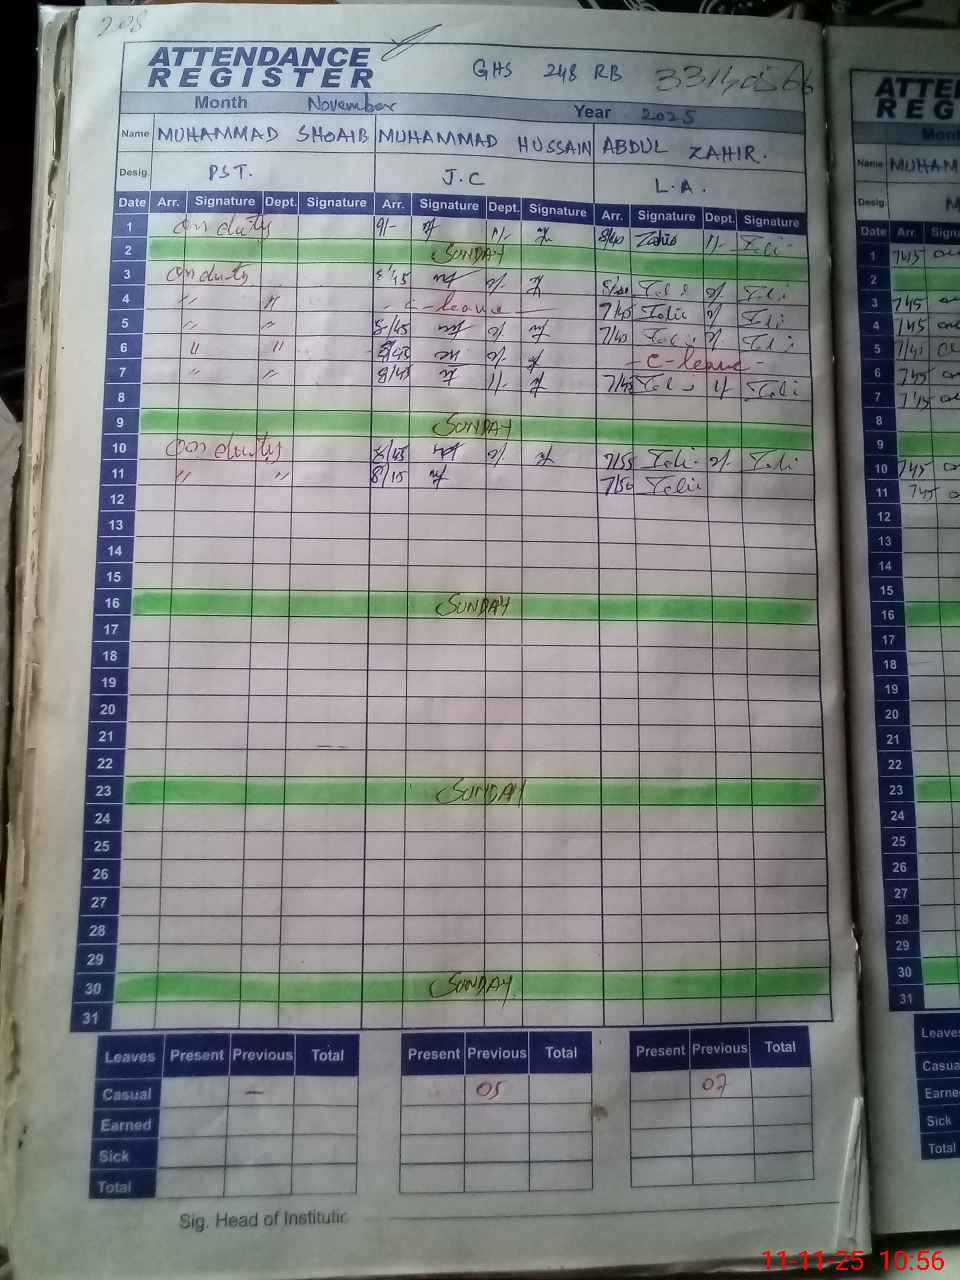 208
ATTENDANCE
REGISTER
GHS 248 RB 33140566
Month November Year 2025
Name MUHAMMAD SHOAIB MUHAMMAD HUSSAIN ABDUL ZAHIR.
Desig. PST. J.C L.A.
Date Arr. Signature Dept. Signature Arr. Signature Dept. Signature Arr. Signature Dept. Signature
1 on duty 9/- 8/40 Zahir
2 SUNDAY
3 on duty 8/45
4 " " C-leave 7/40
5 " " 8/45 7/40
6 " " 8/45 - C-leave -
7 " " 8/45 7/45
8
9 SUNDAY
10 on duty 8/45 7/55
11 " " 8/15 7/50
12
13
14
15
16 SUNDAY
17
18
19
20
21
22
23 SUNDAY
24
25
26
27
28
29
30 SUNDAY
31
Leaves Present Previous Total Present Previous Total Present Previous Total
Casual — 05 07
Earned
Sick
Total
Sig. Head of Institutio
ATTE
REG
Month
Name MUHAM
Desig. M
Date Arr. Signa
1 745
2
3 745
4 745
5 7/45
6 745
7 745
8
9
10 745
11 745
12
13
14
15
16
17
18
19
20
21
22
23
24
25
26
27
28
29
30
31
Leaves
Casua
Earne
Sick
Total
11-11-25 10:56